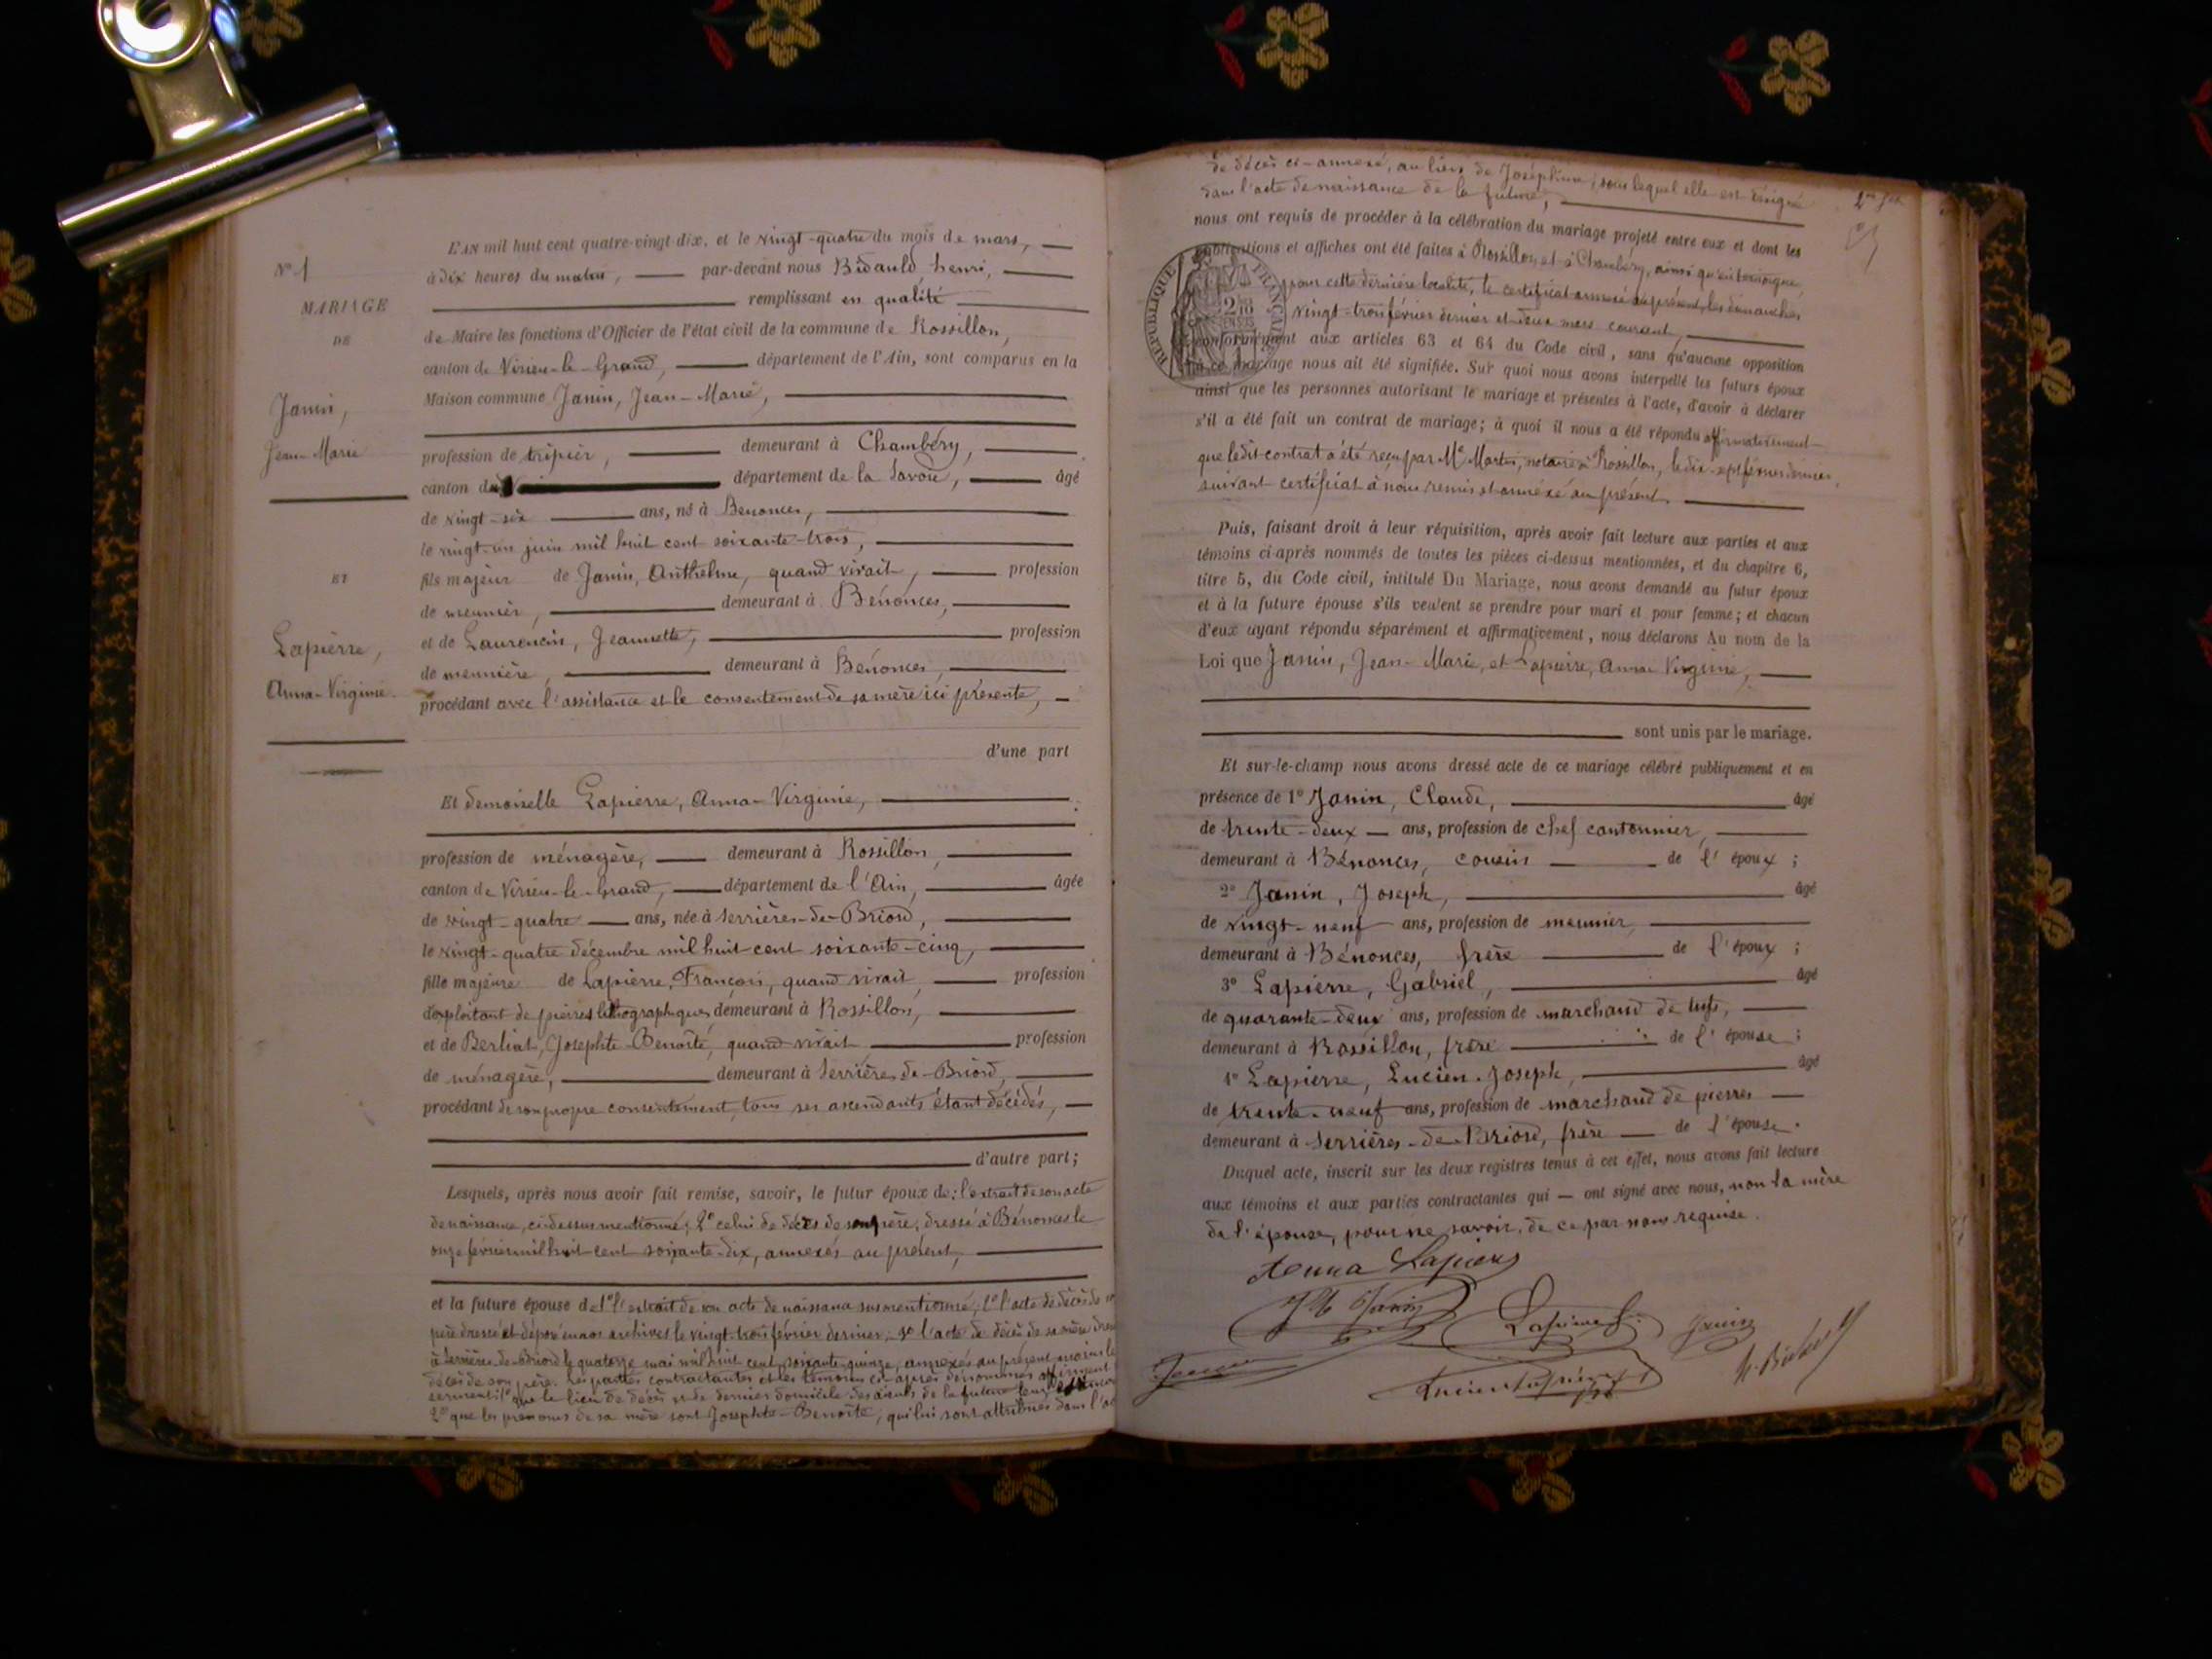 L'AN mil huit cent quatre-vingt dix, et le vingt-quatre du mois de mars,
N° 1
à dix heures du matin, par-devant nous Bidauld henri,
MARIAGE
remplissant en qualité
DE
de Maire les fonctions d'Officier de l'état civil de la commune de Rossillon,
canton de Virieu-le-Grand, département de l'Ain, sont comparus en la
Maison commune Janin, Jean-Marie,
Janin,
Jean-Marie
profession de tripier, demeurant à Chambéry,
canton de département de la Savoie, âgé
de vingt-six ans, né à Benonces,
le vingt-un juin mil huit cent soixante-trois,
ET
fils majeur de Janin, Anthelme, quand vivait, profession
de meunier, demeurant à Bénonces,
et de Laurencin, Jeannette, profession
Lapierre,
de meunière, demeurant à Bénonces,
Anna-Virginie
procédant avec l'assistance et le consentement de sa mère ici présente,
d'une part
Et demoiselle Lapierre, Anna-Virginie,
profession de ménagère, demeurant à Rossillon,
canton de Virieu-le-Grand, département de l'Ain, âgée
de vingt-quatre ans, née à Serrières-de-Briord,
le vingt-quatre décembre mil huit cent soixante-cinq,
fille majeure de Lapierre, François, quand vivait, profession
d'exploitant de pierres lithographiques demeurant à Rossillon,
et de Berliat, Josephte-Benoîte, quand vivait profession
de ménagère, demeurant à Serrières-de-Briord,
procédant de son propre consentement, tous ses ascendants étant décédés,
d'autre part;
Lesquels, après nous avoir fait remise, savoir, le futur époux de: l'extrait de son acte
de naissance, ci-dessus mentionné; 2° celui de décès de son père, dressé à Bénonces le
onze février mil huit cent soixante-dix, annexés au présent,
et la future épouse de 1° l'extrait de son acte de naissance susmentionné; 2° l'acte de décès de
père dressé et déposé en nos archives le vingt-trois février dernier; 3° l'acte de décès de sa mère
à Serrières-de-Briord le quatorze mai mil huit cent soixante-quinze, annexés au présent moins le
décès de son père. Les parties contractantes et les témoins ci-après dénommés affirment
serment: 1° que le lieu de décès et de dernier domicile des aïeuls de la future
2° que les prénoms de sa mère sont Josephte-Benoîte, qui lui sont attribués dans
de décès ci-annexé, au lieu de Joséphine, sous lequel elle est désignée
dans l'acte de naissance de la future,
nous ont requis de procéder à la célébration du mariage projeté entre eux et dont les
publications et affiches ont été faites à Rossillon et à Chambéry, ainsi qu'en témoigne,
pour cette dernière localité, le certificat annexé au présent, les dimanches
vingt-trois février dernier et deux mars courant,
RÉPUBLIQUE FRANÇAISE
conformément aux articles 63 et 64 du Code civil, sans qu'aucune opposition
à ce mariage nous ait été signifiée. Sur quoi nous avons interpellé les futurs époux
ainsi que les personnes autorisant le mariage et présentes à l'acte, d'avoir à déclarer
s'il a été fait un contrat de mariage; à quoi il nous a été répondu affirmativement
que ledit contrat a été reçu par Me Martin, notaire à Rossillon, le dix-sept février dernier,
suivant certificat à nous remis et annexé au présent.
Puis, faisant droit à leur réquisition, après avoir fait lecture aux parties et aux
témoins ci-après nommés de toutes les pièces ci-dessus mentionnées, et du chapitre 6,
titre 5, du Code civil, intitulé Du Mariage, nous avons demandé au futur époux
et à la future épouse s'ils veulent se prendre pour mari et pour femme; et chacun
d'eux ayant répondu séparément et affirmativement, nous déclarons Au nom de la
Loi que Janin, Jean-Marie, et Lapierre, Anna Virginie,
sont unis par le mariage.
Et sur-le-champ nous avons dressé acte de ce mariage célébré publiquement et en
présence de 1° Janin, Claude, âgé
de trente-deux ans, profession de chef cantonnier,
demeurant à Bénonces, cousin de l'époux;
2° Janin, Joseph, âgé
de vingt-neuf ans, profession de meunier
demeurant à Bénonces, frère de l'époux;
3° Lapierre, Gabriel, âgé
de quarante-deux ans, profession de marchand de tufs,
demeurant à Rossillon, frère de l'épouse;
4° Lapierre, Lucien-Joseph, âgé
de trente-neuf ans, profession de marchand de pierres
demeurant à Serrières-de-Briord, frère de l'épouse.
Duquel acte, inscrit sur les deux registres tenus à cet effet, nous avons fait lecture
aux témoins et aux parties contractantes qui ont signé avec nous, non la mère
de l'épouse, pour ne savoir, de ce par nous requise.
Anna Lapierre
J M Janin
Janin